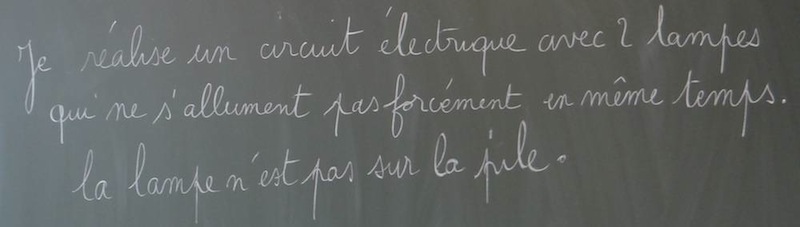 Je réalise un circuit électrique avec 2 lampes
qui ne s'allument pas forcément en même temps.
la lampe n'est pas sur la pile.